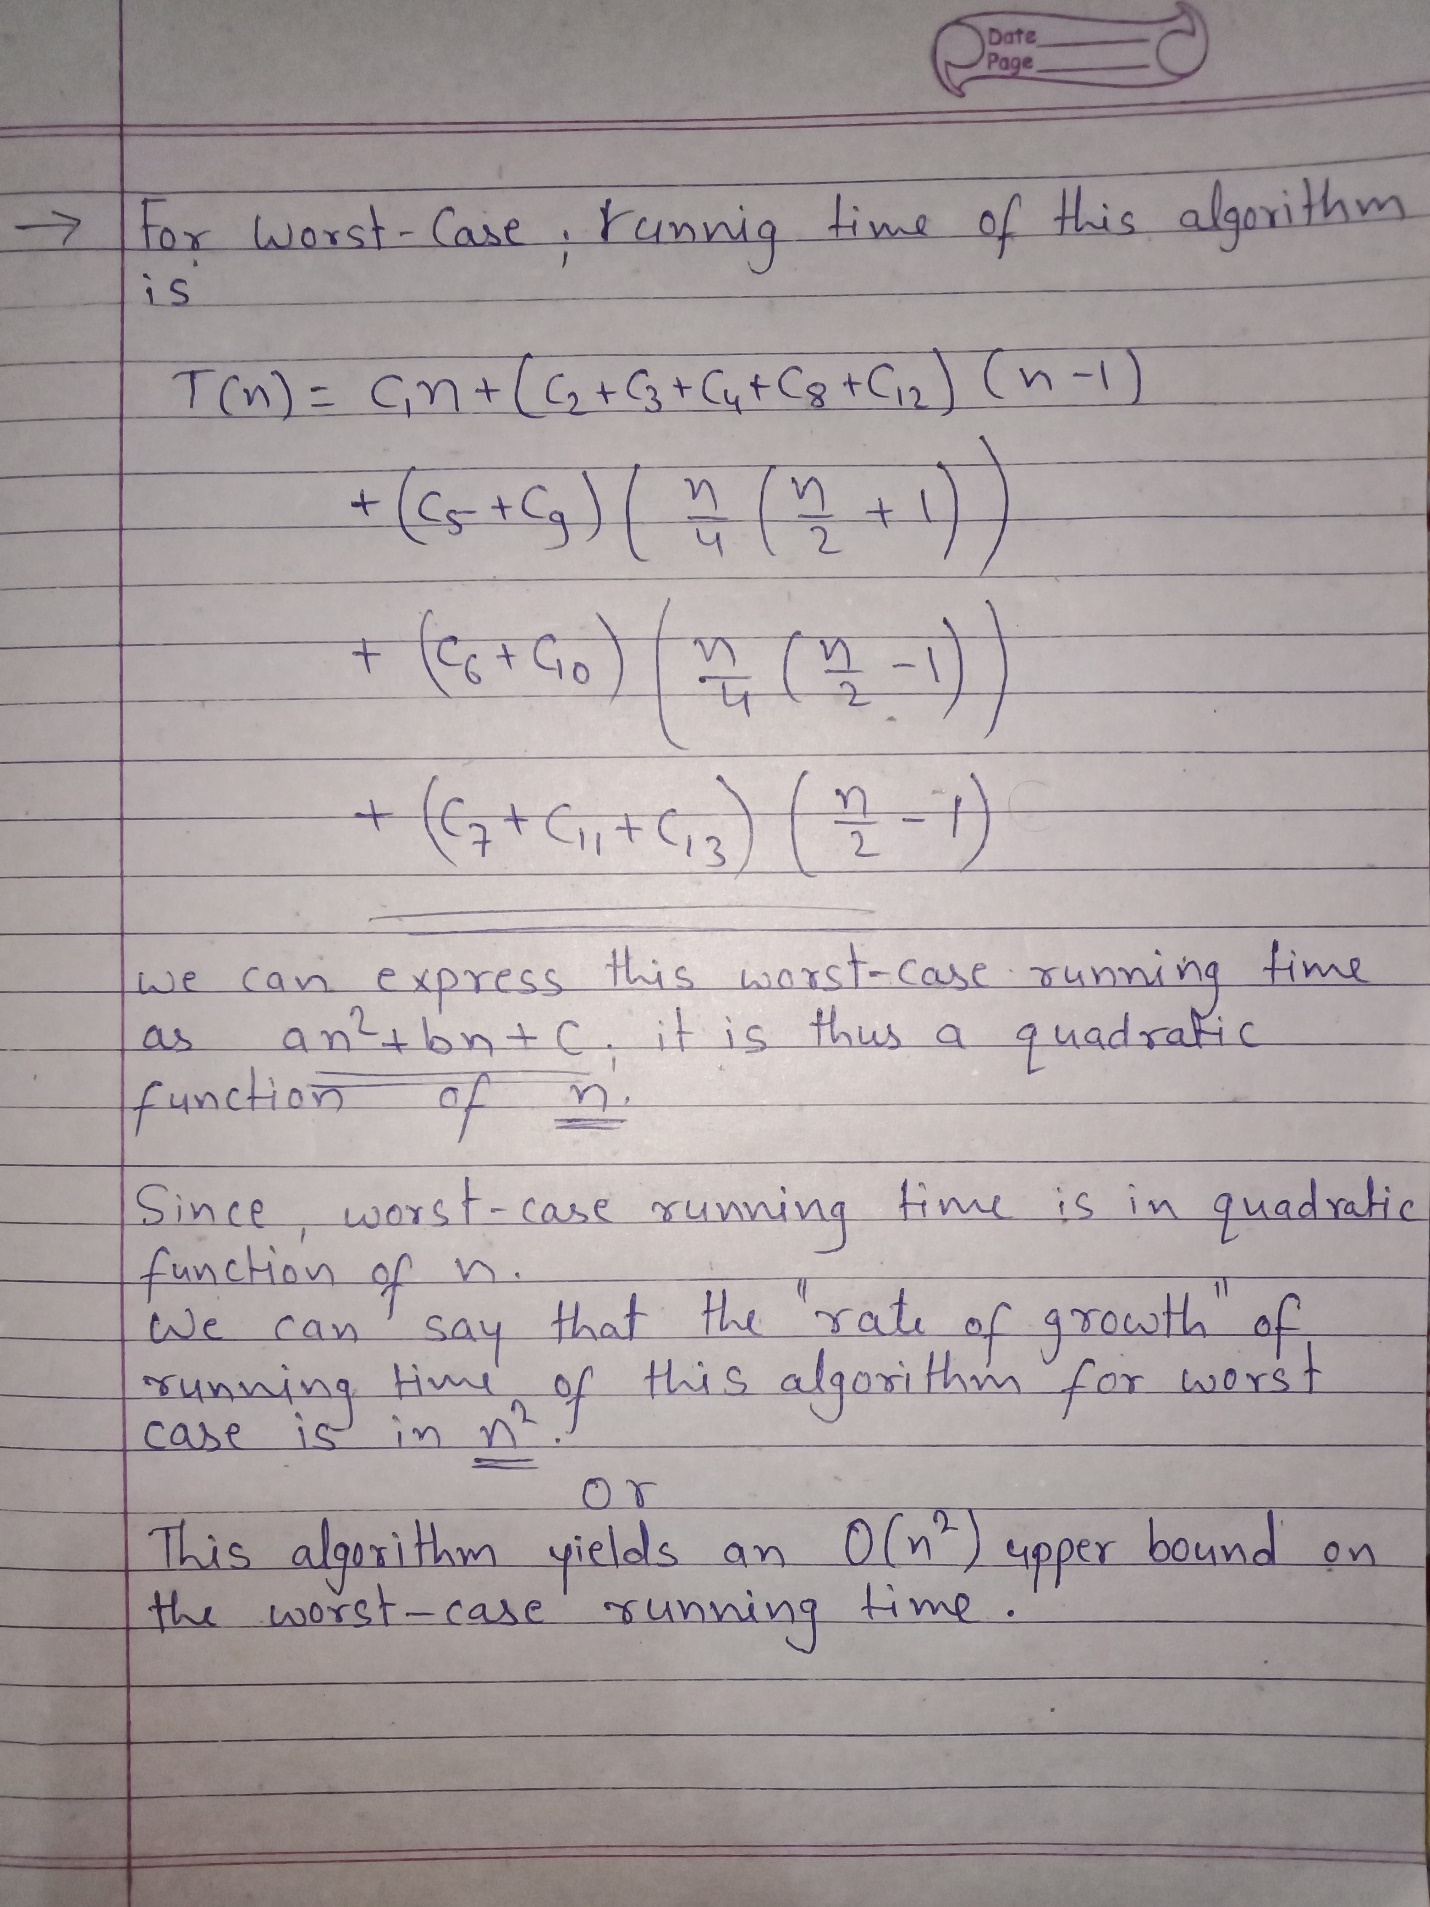 Date
Page
→ For Worst-Case, runnig time of this algorithm
is
T(n) = C₁n + (C₂ + C₃ + C₄ + C₈ + C₁₂) (n-1)
+ (C₅ + C₉) ( n/4 ( n/2 + 1 ) )
+ (C₆ + C₁₀) ( n/4 ( n/2 - 1 ) )
+ (C₇ + C₁₁ + C₁₃) ( n/2 - 1 )
we can express this worst-case running time
as an² + bn + C; it is thus a quadratic
function of n.
Since, worst-case running time is in quadratic
function of n.
we can say that the "rate of growth" of
running time of this algorithm for worst
case is in n².
or
This algorithm yields an O(n²) upper bound on
the worst-case running time.